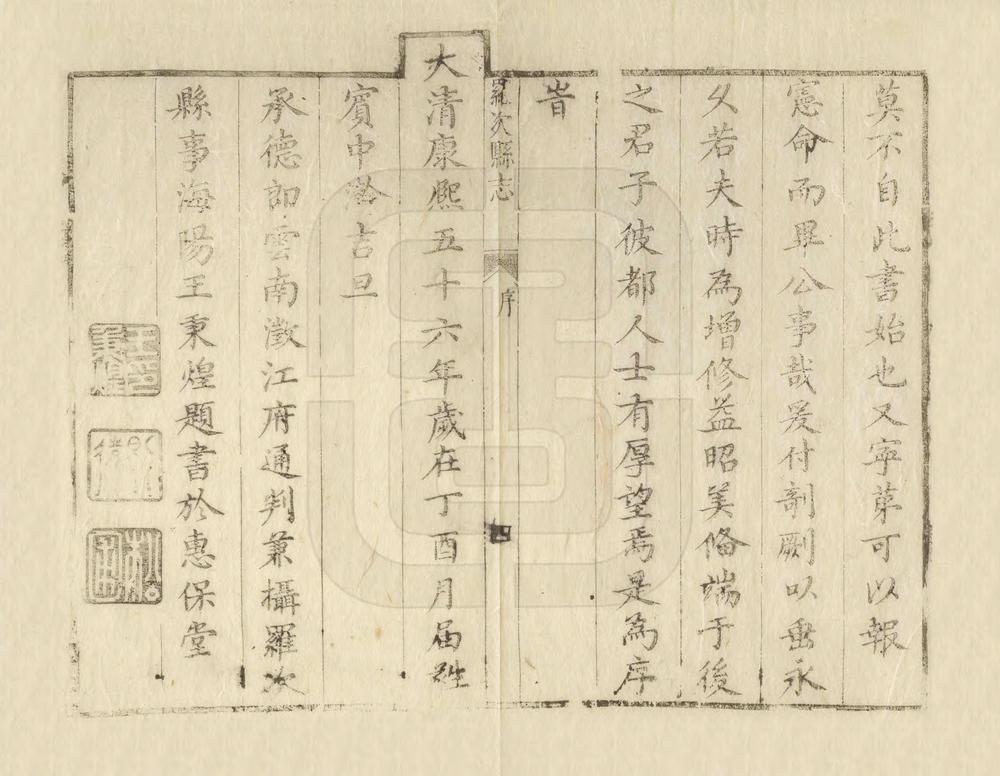 莫不自此書始也又寜苐可以報
憲命而畢公事哉爰付剞劂以垂永
久若夫時為增修益昭美俻端于後
之君子彼都人士有厚望焉是為序
旹
羅次縣志
序
四
大清康熈五十六年歲在丁酉月届㽔
賔中澣吉旦
承德郎雲南澂江府通判兼攝羅次
縣事海陽王秉煌題書於惠保堂